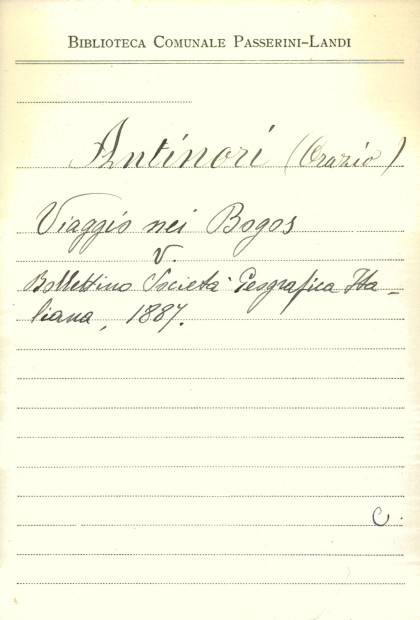 BIBLIOTECA COMUNALE PASSERINI-LANDI
Antinori (Orazio)
Viaggio nei Bogos
V.
Bollettino Società Geografica Ita-
liana, 1887.
C.